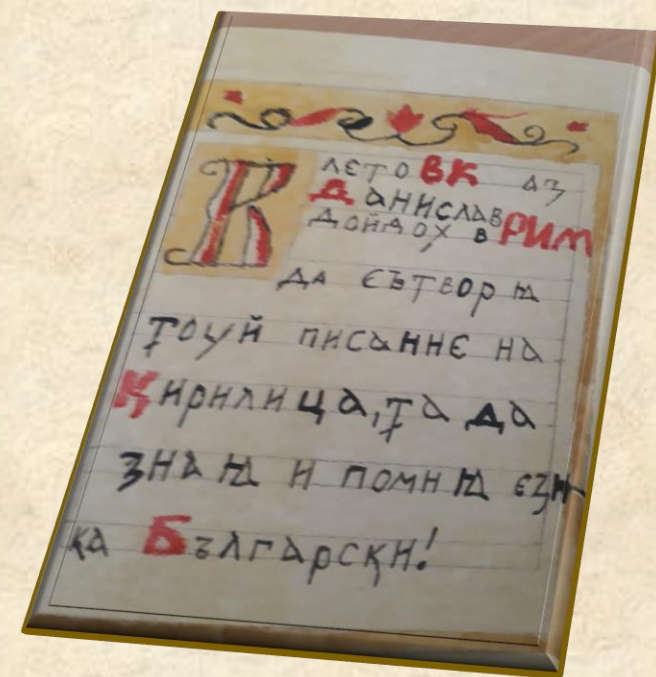 В лето ВК аз
Данислав
дойдох в РИМ
да сътворѭ
тоуй писанне на
Кирилица, та да
знаѭ и помнѭ ези
ка Български!